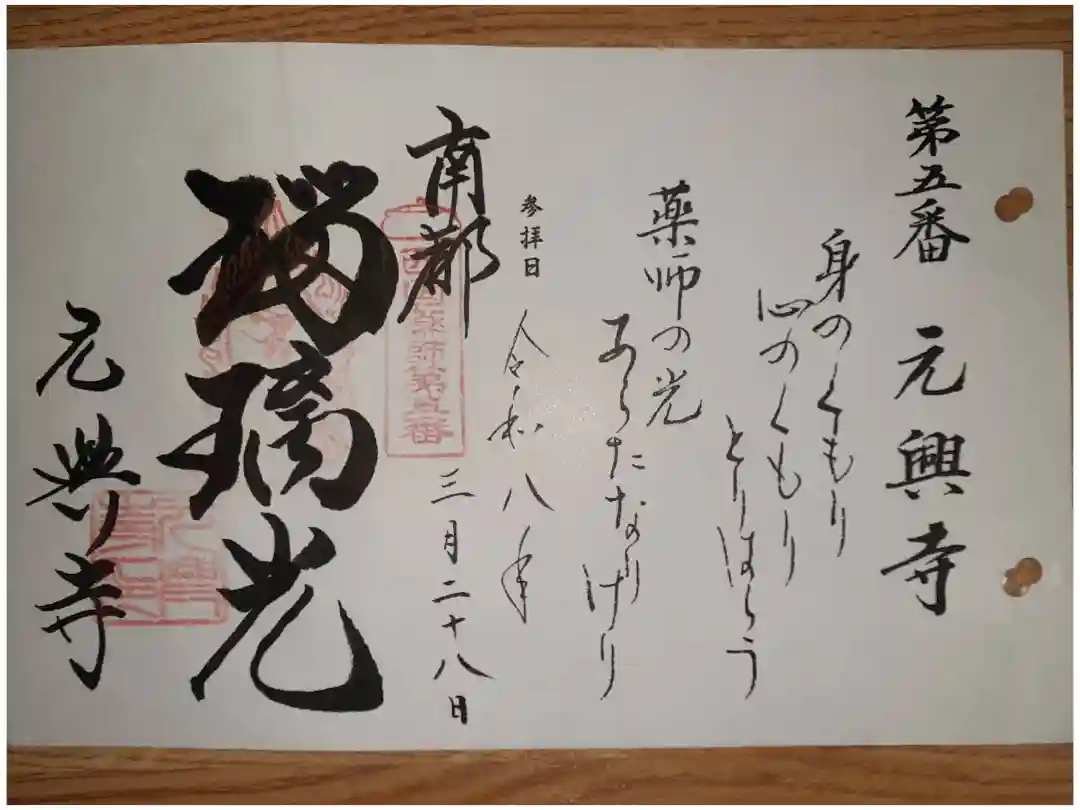 第五番 元興寺
身のくもり
心のくもり
とりはらう
薬師の光
あらたなり
けり
参拝日 令和八年
三月二十八日
南都
西国薬師第五番
瑠璃光
元興寺